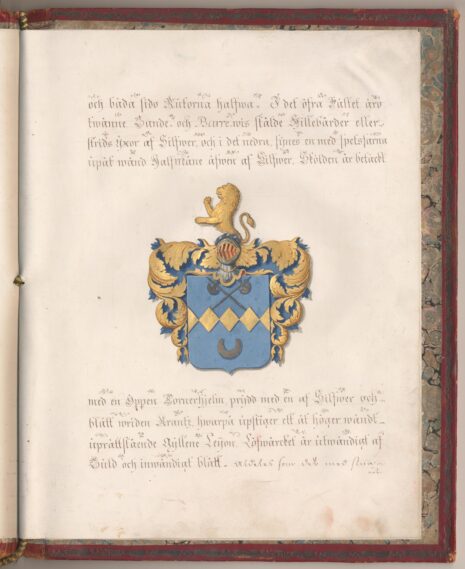 och båda sido Rutorna halfwa. I det öfra Fältet äro
twänne Sande. och Wärre. wis stälde Hillebärder eller
strids yxor af Silfwer, och i det nedra, synes en med spetsarna
upåt wänd Halfmåne äfwen af Silfwer. Skölden är betäckt
med en öppen Tornerhielm, prydd med en af Silfwer och
blått wriden Krantz, hwarpå upstiger ett åt höger wändt
uprättstående Gyllene Leijon. Löfwärcket är utwändigt af
Guld och inwändigt blått. aldeles som det med